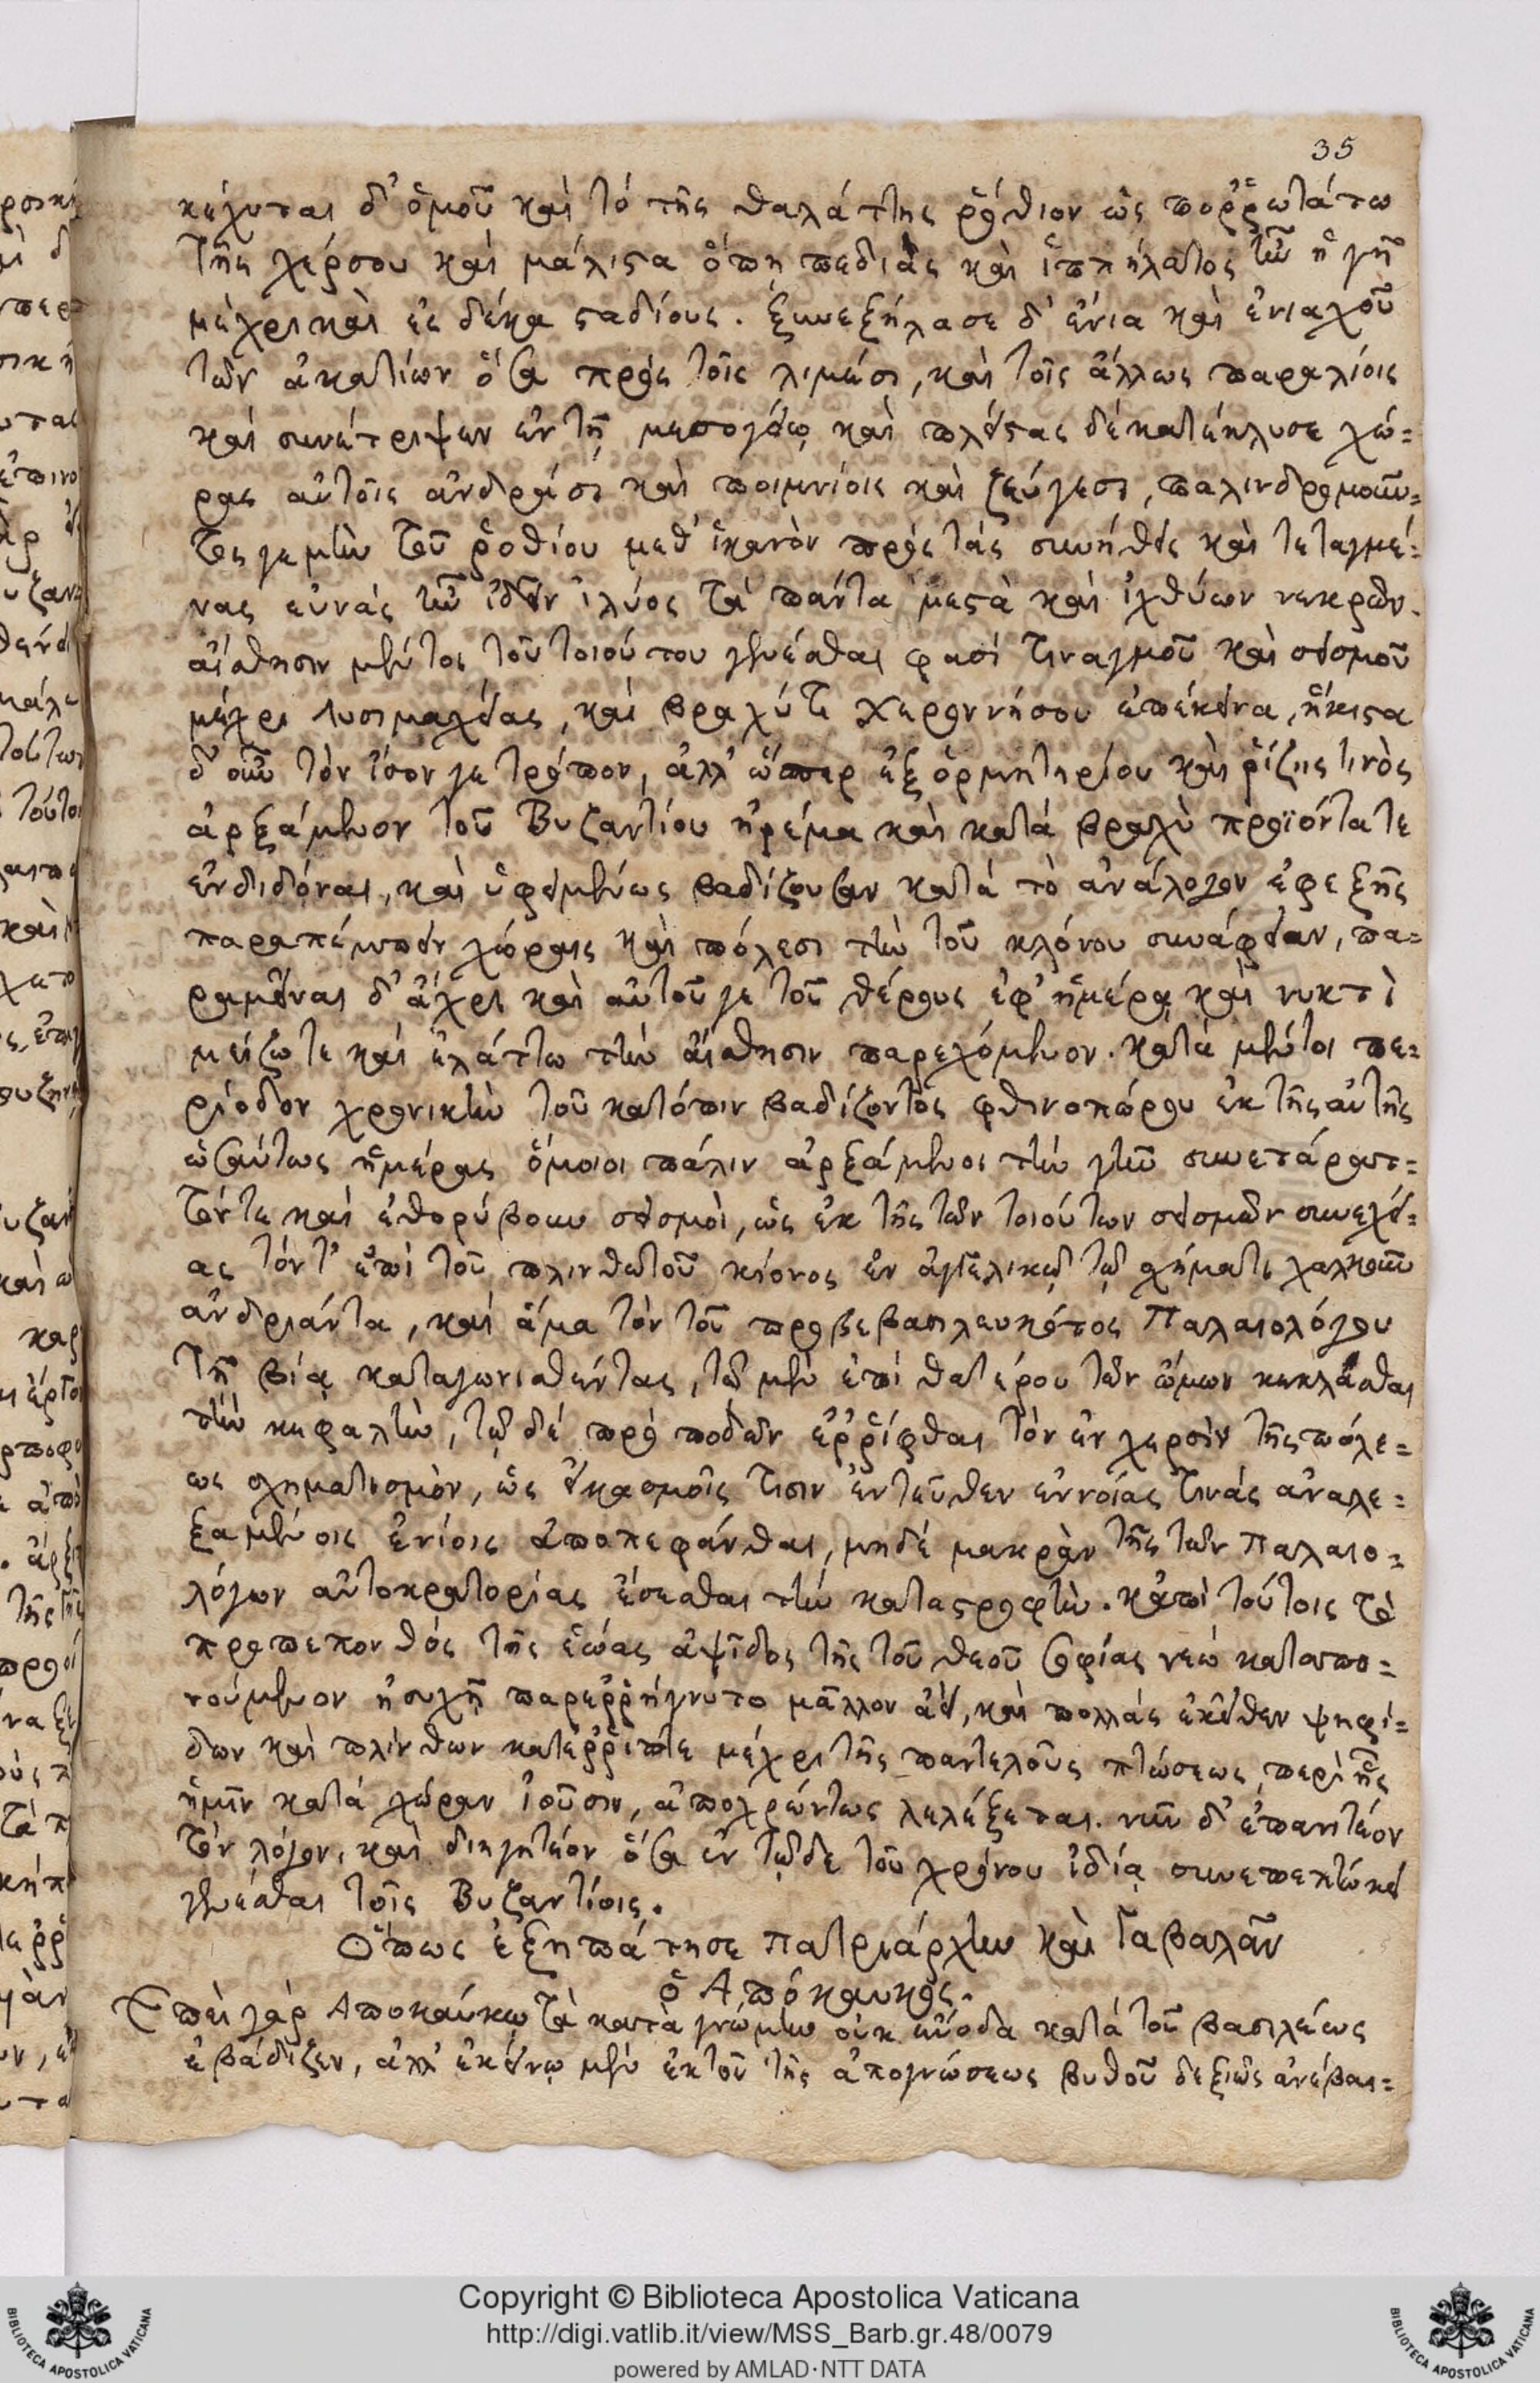 35
κέχυται δ' ὁμοῦ καὶ τό τῆς θαλάττης ῥόθιον ὡς ποῤῥωτάτω
τῆς χέρσου καὶ μάλιστα ὅπη πεδιὰς καὶ ἱππήλατος ἦν ἡ γῆ
μέχρι καὶ ἐς δέκα σταδίους. ξυνεξήλασε δ' ἔνια καὶ ἐνιαχοῦ
τῶν ἀκατίων ὅσα πρὸς τοῖς λιμέσι, καὶ τοῖς ἄλλως παραλίοις
καὶ συνέτριψεν ἐν τῇ μεσογείῳ καὶ πλείστας δὲ κατέκλυσε χώ=
ρας αὐτοῖς ἀνδράσι καὶ ποιμνίοις καὶ ζεύγεσι, παλινδρομοῦν=
τος γεμὴν τοῦ ῥοθίου μεθ' ἱκανὸν πρὸς τάς συνήθεις καὶ τεταγμέ=
νας εὐνάς ἦν ἰδεῖν ἰλύος τὰ πάντα μεστὰ καὶ ἰχθύων νεκρῶν.
αἴσθησιν μέντοι τοῦ τοιούτου γενέσθαι φασί τιναγμοῦ καὶ σεισμοῦ
μέχρι Λυσιμαχείας, καὶ βραχύ τι Χερρονήσου ἐπέκεινα, ἥκιστα
δ' οὖν τὸν ἴσον γε τρόπον, ἀλλ' ὥσπερ ἐξ ὁρμητηρίου καὶ ῥίζης τινὸς
ἀρξάμενον τοῦ Βυζαντίου ἠρέμα καὶ κατά βραχὺ προϊόντα τε
ἐνδιδόναι, καὶ ὑφειμένως βαδίζουσαν κατά τὸ ἀνάλογον ἐφεξῆς
παραπέμπειν χώραις καὶ πόλεσι τὴν τοῦ κλόνου συνάφειαν, πα=
ραμεῖναι δ' ἄχρι καὶ αὐτοῦ γε τοῦ θέρους ἐφ' ἡμέρᾳ καὶ νυκτὶ
μείζω τε καὶ ἐλάττω τὴν αἴσθησιν παρεχόμενον. κατὰ μέντοι πε=
ρίοδον χρονικὴν τοῦ κατόπιν βαδίζοντος φθινοπώρου ἐκ τῆς αὐτῆς
ὡσαύτως ἡμέρας ὅμοιοι πάλιν ἀρξάμενοι τὴν γῆν συνετάραττ=
τόν τε καὶ ἐθορύβουν σεισμοὶ, ὡς ἐκ τῆς τῶν τοιούτων σεισμῶν συνεχεί=
ας τόν τ' ἐπὶ τοῦ πλινθωτοῦ κίονος ἐν ἀγγελικῷ τῷ σχήματι χαλκοῦν
ἀνδριάντα, καὶ ἅμα τὸν τοῦ προβεβασιλευκότος Παλαιολόγου
τῇ βίᾳ καταγωνισθέντας, τῷ μὲν ἐπὶ θατέρου τῶν ὤμων κεκλάσθαι
τὴν κεφαλὴν, τῷ δὲ πρό ποδῶν ἐῤῥίφθαι τὸν ἐν χερσὶν τῆς πόλε=
ως σχηματισμὸν, ὡς εἰκασμοῖς τισιν ἐντεῦθεν ἐννοίας τινάς ἀναλε=
ξαμένοις ἐνίοις ἀποπεφάνθαι, μηδὲ μακρὰν τῆς τῶν Παλαιο=
λόγων αὐτοκρατορίας ἔσεσθαι τὴν καταστροφὴν. κἀπὶ τούτοις τὸ
προπεπονθός τῆς ἑῴας ἀψῖδος τῆς τοῦ θεοῦ σοφίας νεώ καταπο=
νούμενον ἡσυχῆ παρεῤῥήγνυτο μᾶλλον ἀεί, καὶ πολλάς ἐκεῖθεν ψηφί=
δων καὶ πλίνθων κατεῤῥίπτει μέχρι τῆς παντελοῦς πτώσεως, περὶ ἧς
ἡμῖν κατά χώραν ἰοῦσιν, ἀποχρώντως λελέξεται. νῦν δ' ἐπανιτέον
τὸν λόγον, καὶ διηγητέον ὅσα ἐν τῷδε τοῦ χρόνου ἰδίᾳ συνεπεπτώκει
γενέσθαι τοῖς Βυζαντίοις.
Ὅπως ἐξηπάτησε πατριάρχην καὶ Γαβαλᾶν
ὁ Ἀπόκαυκος.
Ἐπεὶ γάρ Ἀποκαύκῳ τὰ κατὰ γνώμην οὐκ εὔοδα κατά τοῦ βασιλέως
ἐβάδιζεν, ἀλλ' ἐκείνῳ μὲν ἐκ τοῦ τῆς ἀπογνώσεως βυθοῦ δεξιῶς ἀνέβαι=
Copyright © Biblioteca Apostolica Vaticana
http://digi.vatlib.it/view/MSS_Barb.gr.48/0079
powered by AMLAD·NTT DATA
BIBLIOTECA APOSTOLICA VATICANA
BIBLIOTECA APOSTOLICA VATICANA